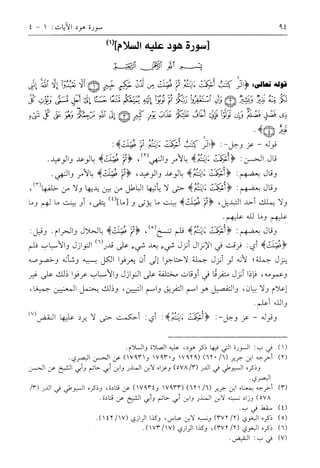 ٩٤
سورة هود الآيات: ١ - ٤
[سورة هود عليه السلام](١)
بسم الله الرحمن الرحيم
قوله تعالى: ﴿الٓرۚ كِتَٰبٌ أُحۡكِمَتۡ ءَايَٰتُهُۥ ثُمَّ فُصِّلَتۡ مِن لَّدُنۡ حَكِيمٍ خَبِيرٍ ۝١ أَلَّا تَعۡبُدُوٓاْ إِلَّا ٱللَّهَۚ إِنَّنِي
لَكُم مِّنۡهُ نَذِيرٞ وَبَشِيرٞ ۝٢ وَأَنِ ٱسۡتَغۡفِرُواْ رَبَّكُمۡ ثُمَّ تُوبُوٓاْ إِلَيۡهِ يُمَتِّعۡكُم مَّتَٰعًا حَسَنًا إِلَىٰٓ أَجَلٖ مُّسَمّٗى وَيُؤۡتِ كُلَّ
ذِي فَضۡلٖ فَضۡلَهُۥۖ وَإِن تَوَلَّوۡاْ فَإِنِّيٓ أَخَافُ عَلَيۡكُمۡ عَذَابَ يَوۡمٖ كَبِيرٍ ۝٣ إِلَى ٱللَّهِ مَرۡجِعُكُمۡۖ وَهُوَ عَلَىٰ كُلِّ شَيۡءٖ
قَدِيرٌ ۝٤﴾.
قوله - عز وجل -: ﴿الٓرۚ كِتَٰبٌ أُحۡكِمَتۡ ءَايَٰتُهُۥ ثُمَّ فُصِّلَتۡ﴾:
قال الحسن: ﴿أُحۡكِمَتۡ ءَايَٰتُهُۥ﴾ بالأمر والنهي(٢)، ﴿ثُمَّ فُصِّلَتۡ﴾ بالوعد والوعيد.
وقال بعضهم: ﴿أُحۡكِمَتۡ ءَايَٰتُهُۥ﴾ بالوعد والوعيد، ﴿ثُمَّ فُصِّلَتۡ﴾ بالأمر والنهي.
وقال بعضهم: ﴿أُحۡكِمَتۡ ءَايَٰتُهُۥ﴾ حتى لا يأتيها الباطل من بين يديها ولا من خلفها(٣)،
ولا يملك أحد التبديل، ﴿ثُمَّ فُصِّلَتۡ﴾ بينت ما يؤتى و [ما](٤) يتقى، أو بينت ما لهم وما
عليهم وما لله عليهم.
وقال بعضهم: ﴿أُحۡكِمَتۡ ءَايَٰتُهُۥ﴾ فلم تنسخ(٥)، ﴿ثُمَّ فُصِّلَتۡ﴾ بالحلال والحرام. وقيل:
﴿فُصِّلَتۡ﴾ أي: فرقت في الإنزال أنزل شيء بعد شيء على قدر(٦) النوازل والأسباب فلم
ينزل جملة؛ لأنه لو أنزل جملة لاحتاجوا إلى أن يعرفوا الكل بسببه وشأنه وخصوصه
وعمومه، فإذا أنزل متفرقًا في أوقات مختلفة على النوازل والأسباب عرفوا ذلك على غير
إعلام ولا بيان، والتفصيل هو اسم التفريق واسم التبيين، وذلك يحتمل المعنيين جميعًا،
والله أعلم.
وقوله - عز وجل -: ﴿أُحۡكِمَتۡ ءَايَٰتُهُۥ﴾: أي: أحكمت حتى لا يرد عليها النقض(٧)
(١) في ب: السورة التي فيها ذكر هود، عليه الصلاة والسلام.
(٢) أخرجه ابن جرير (٦٢٠/٦) (١٧٩٢٩ و ١٧٩٣٠ و ١٧٩٣١) عن الحسن البصري.
وذكره السيوطي في الدر (٥٧٨/٣) وعزاه لابن المنذر وابن أبي حاتم وأبي الشيخ عن الحسن
البصري.
(٣) أخرجه بمعناه ابن جرير (٦٢١/٦) (١٧٩٣٣ و ١٧٩٣٤) عن قتادة، وذكره السيوطي في الدر (٣/
٥٧٨) وزاد نسبته لابن المنذر وابن أبي حاتم وأبي الشيخ عن قتادة.
(٤) سقط في ب.
(٥) ذكره البغوي (٣٧٢/٢) ونسبه لابن عباس، وكذا الرازي (١٤٢/١٧).
(٦) ذكره البغوي (٣٧٢/٢)، وكذا الرازي (١٧٣/١٧).
(٧) في ب: النقيض.